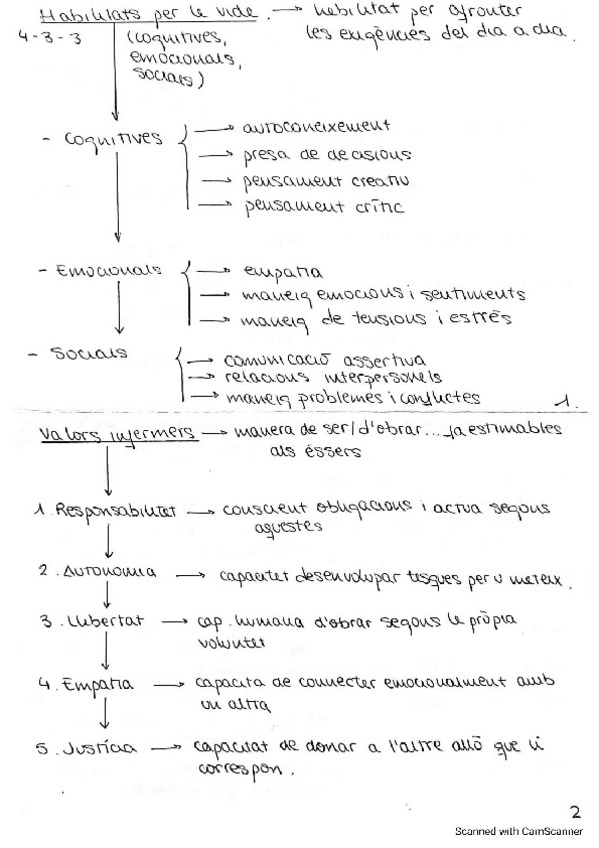 Habilitats per la vida. → habilitat per afrontar
4-3-3 (cognitives, les exigències del dia a dia.
emocionals,
socials)
- Cognitives → autoconeixement
→ presa de decisions
→ pensament creatiu
→ pensament crític
- Emocionals → empatia
→ maneig emocions i sentiments
→ maneig de tensions i estrès
- Socials → comunicació assertiva
→ relacions interpersonals
→ maneig problemes i conflictes 1.
Valors infermers → manera de ser/d'obrar... fa estimables
als éssers
1. Responsabilitat → conscient obligacions i actua segons
aquestes
2. Autonomia → capacitat desenvolupar tasques per u mateix.
3. Llibertat → cap. humana d'obrar segons la pròpia
voluntat
4. Empatia → capacita de connectar emocionalment amb
un altra
5. Justícia → capacitat de donar a l'altre allò que li
correspon.
2
Scanned with CamScanner